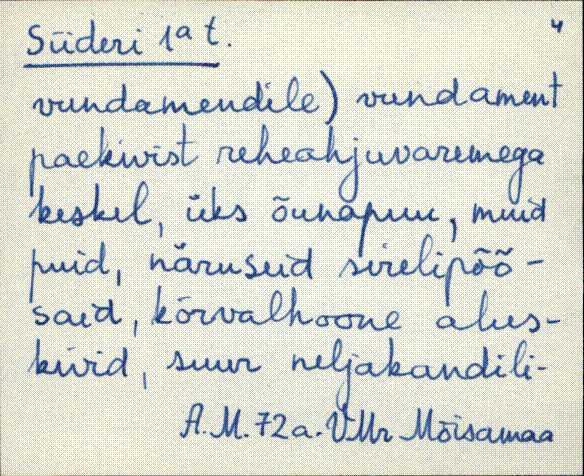 Süderi 1ª t. 4
vundamendile) vundament
paekivist reheahjuvaremega
keskel, üks õunapuu, muid
puid, näruseid sirelipõõ-
said, kõrvalhoone alus-
kivid, suur neljakandili-
A.M. 72a. VMr Mõisamaa